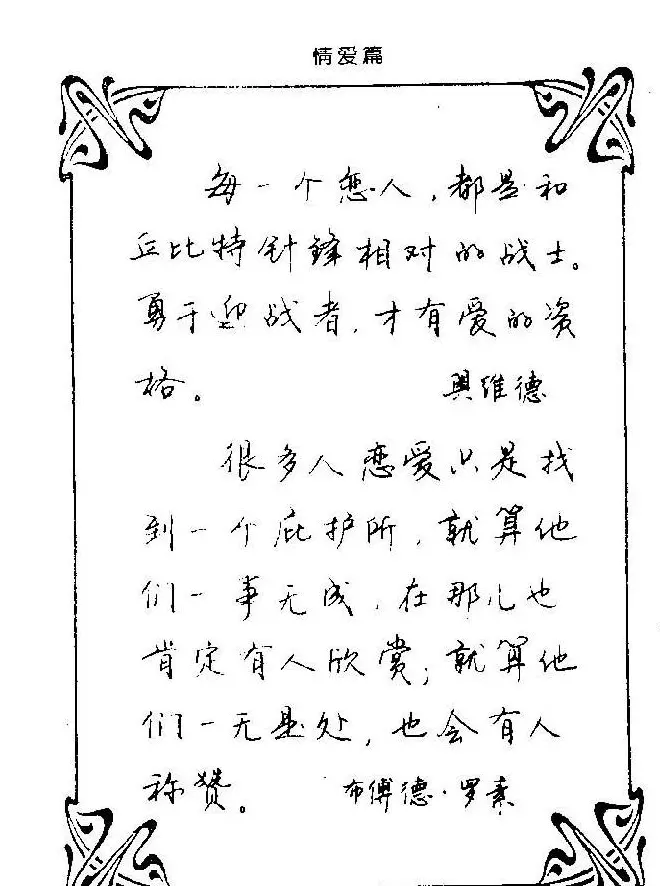 情爱篇
每一个恋人，都是和
丘比特针鋒相对的战士。
勇于迎战者，才有爱的资
格。 奥维德
很多人恋爱只是找
到一个庇护所，就算他
们一事无成，在那儿也
肯定有人欣赏；就算他
们一无是处，也会有人
称赞。 布傅德·罗素